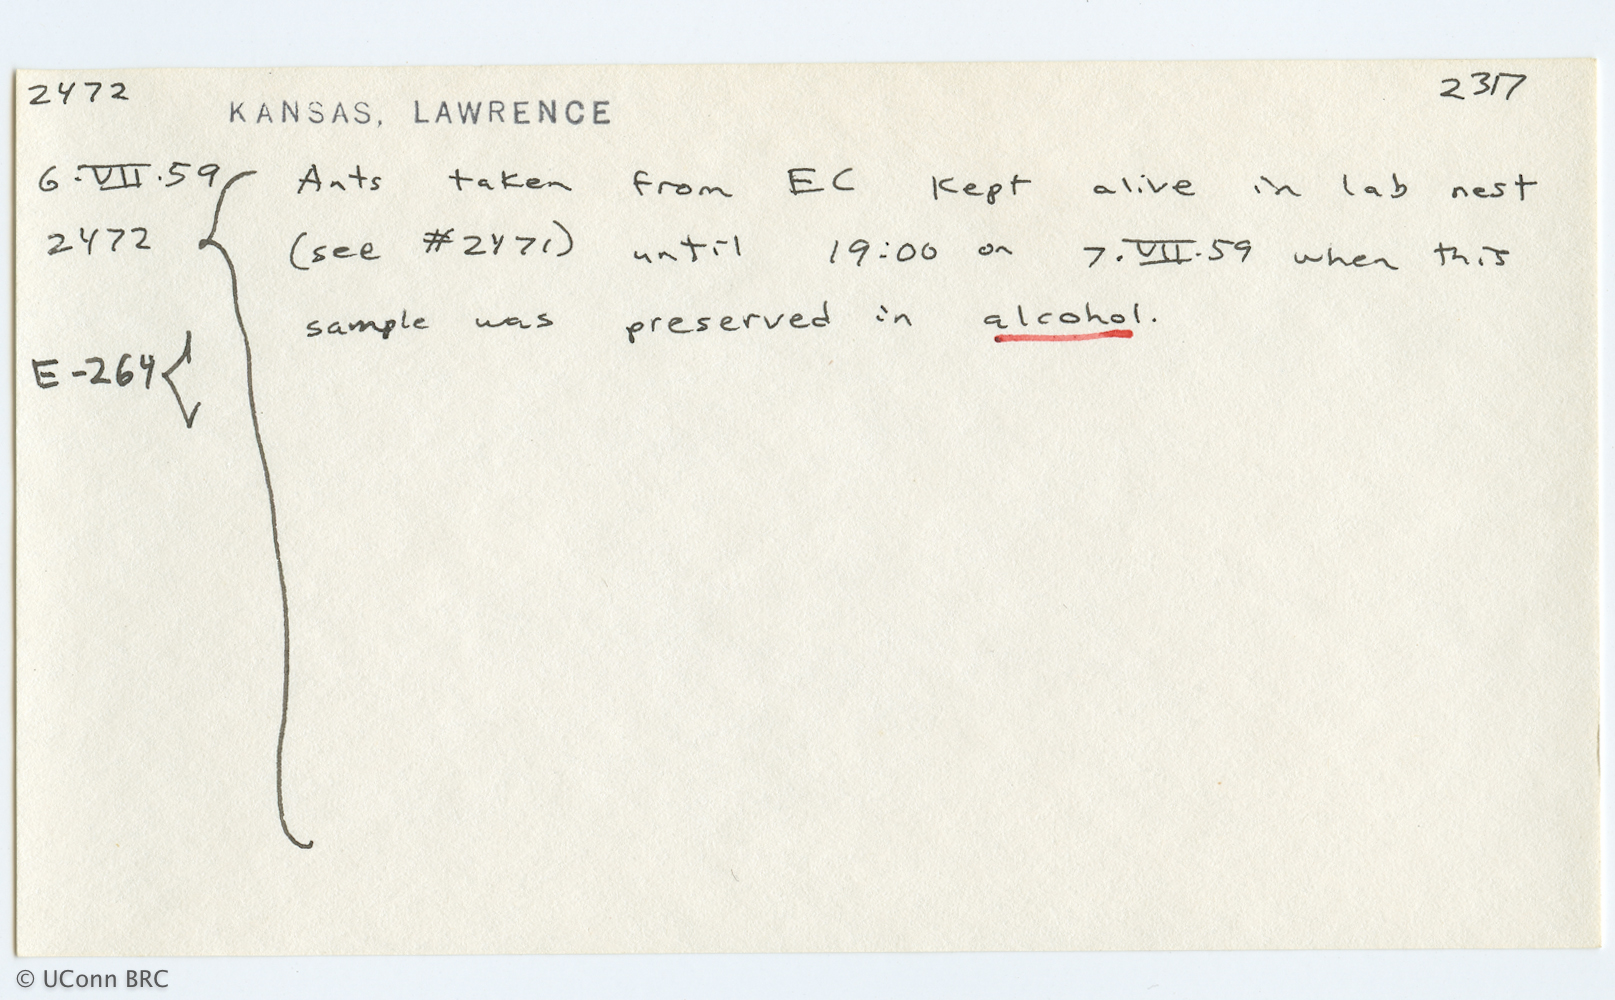 2472 2317
KANSAS, LAWRENCE
6.VII.59 Ants taken from EC kept alive in lab nest
2472 (see #2471) until 19:00 on 7.VII.59 when this
sample was preserved in alcohol.
E-264
© UConn BRC